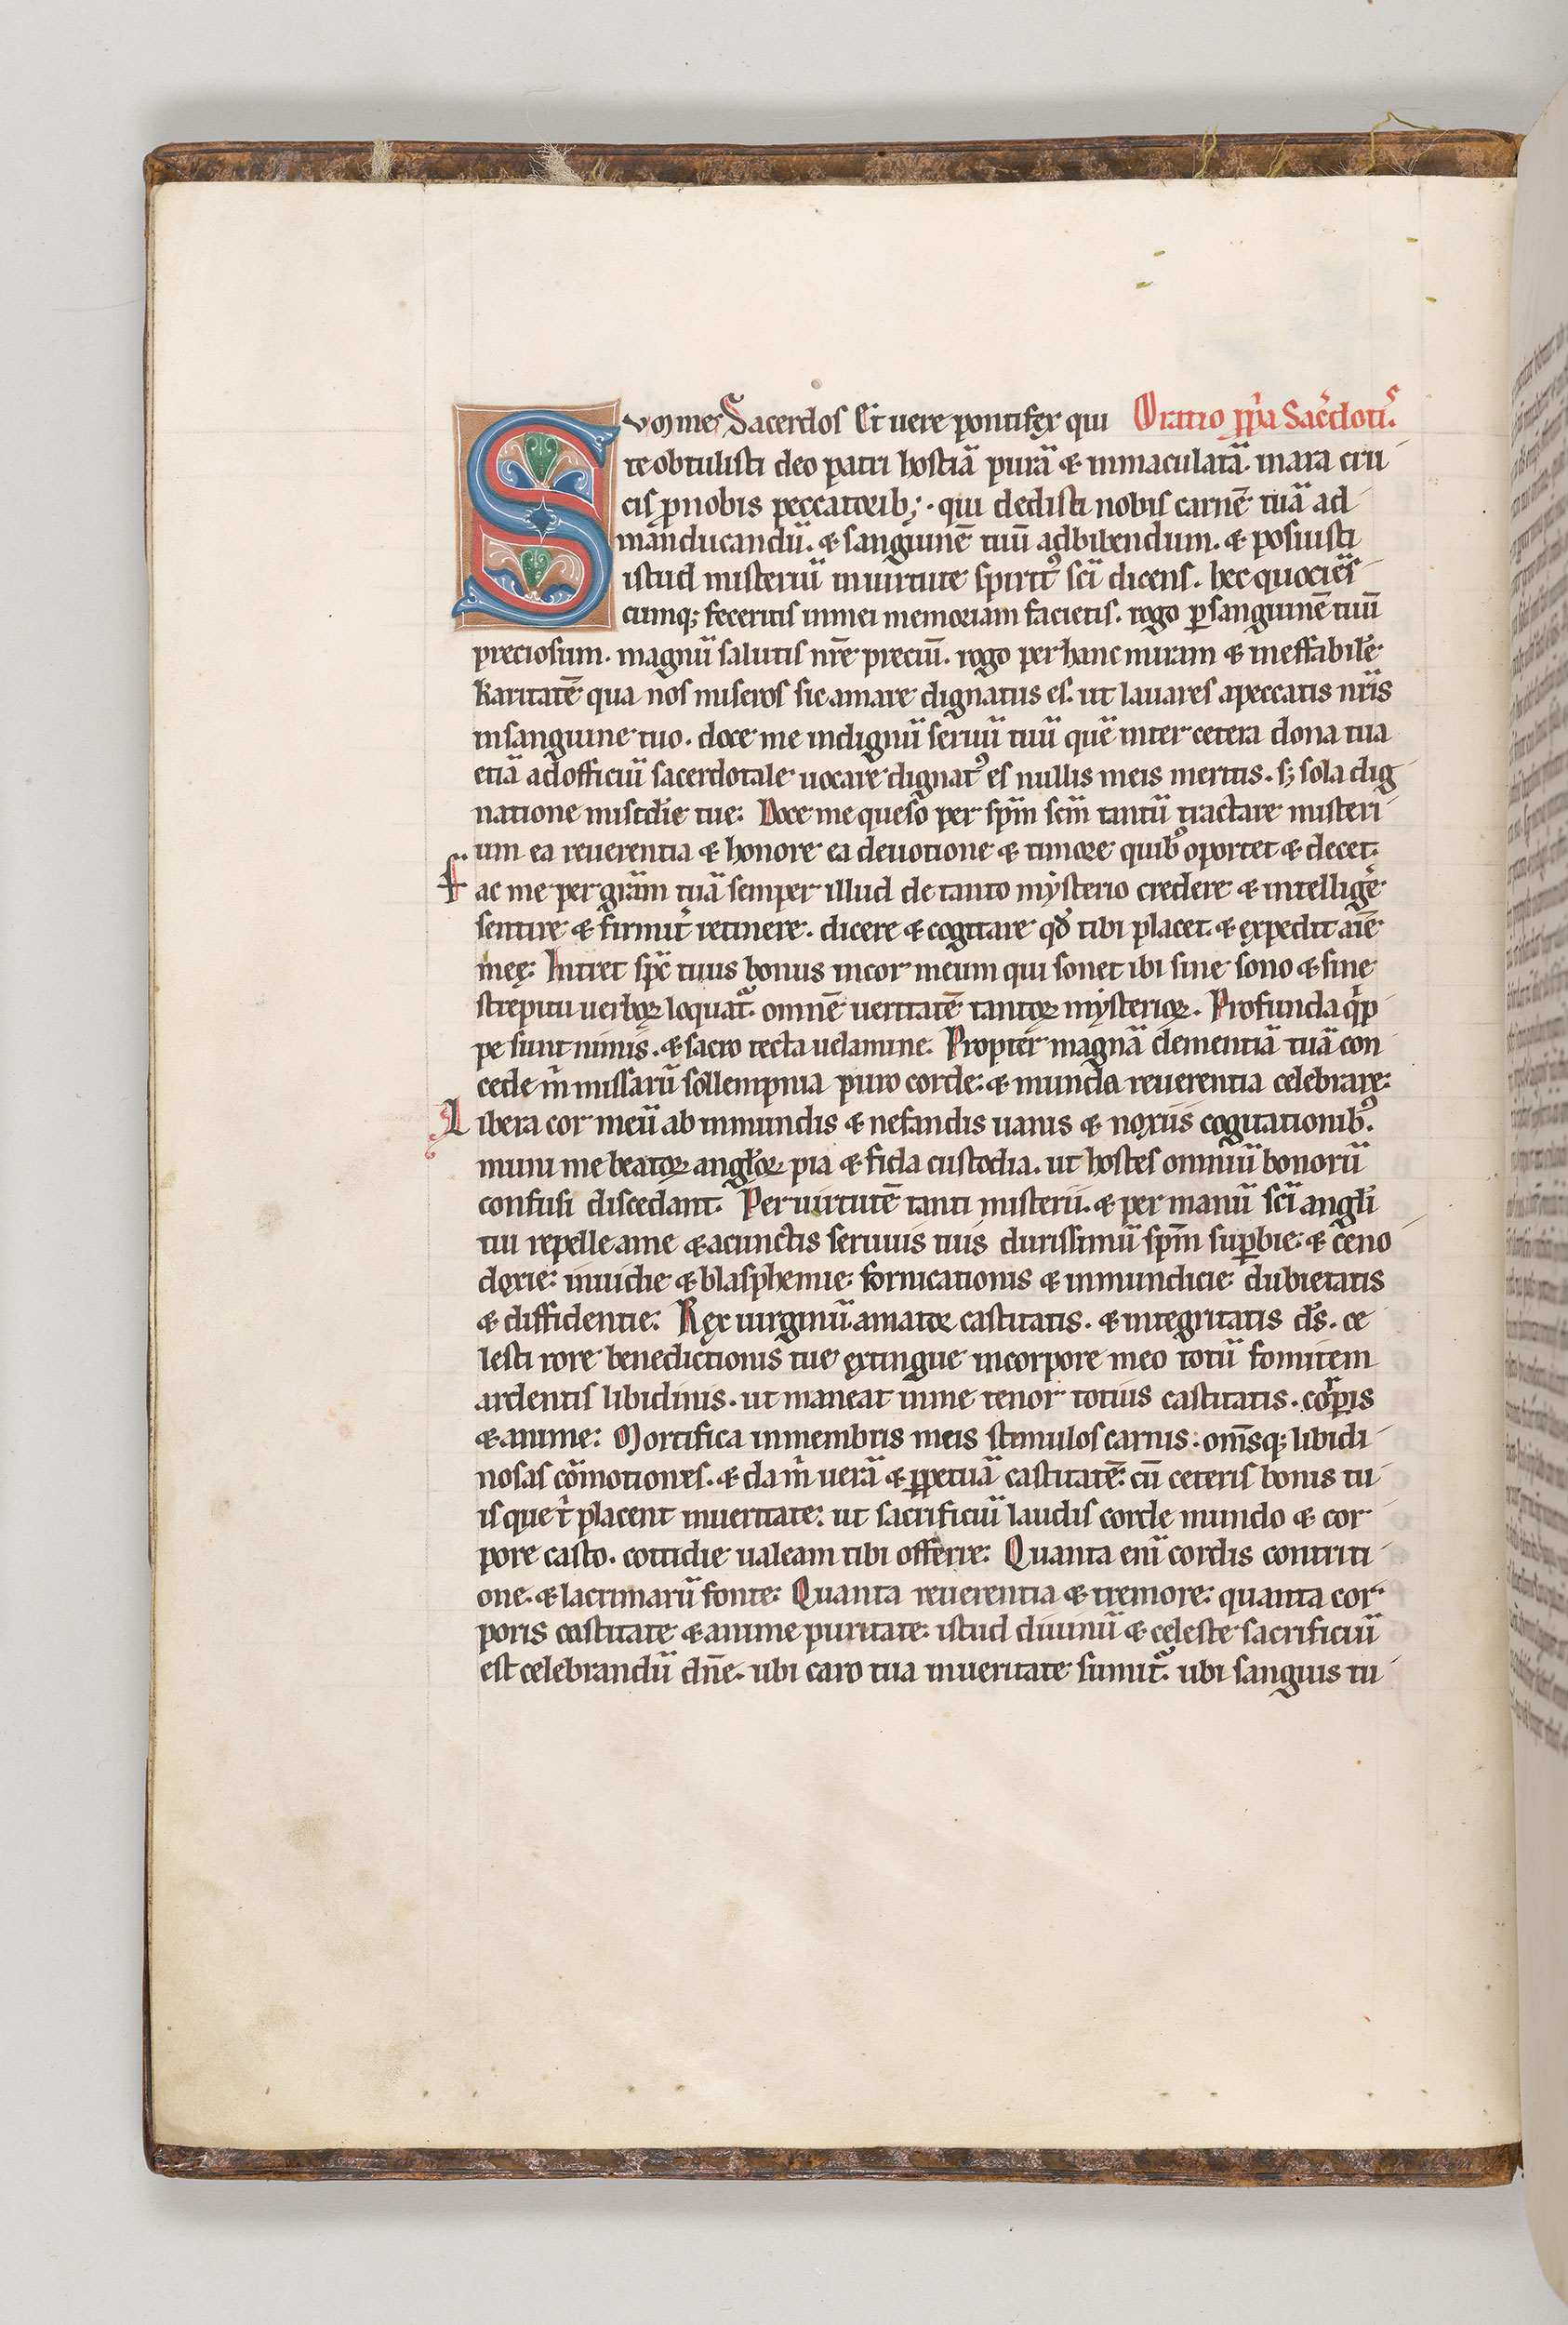 Summe Sacerdos Et uere pontifex qui Oratio ꝓpͥa Sac̄dotiˢ.
te obtulisti deo patri hostiā purā & inmaculatā. inara cru
cis ꝓnobis peccatorib;. qui dedisti nobis carnē tuā ad
manducandū. & sanguinē tuū adbibendum. & posuisti
istud misteriū inuirtute spirit᾽ sc̄i dicens. hec quociēs
cumq; feceritis inmei memoriam facietis. rogo ꝑsanguinē tuū
preciosum. magnū salutis nr̄e preciū. rogo per hanc miram & ineffabilē
karitatē qua nos miseros sic amare dignatus es. ut lauares apeccatis nr̄is
insanguine tuo. doce me indignū seruū tuū quē inter cetera dona tua
etiā adofficiū sacerdotale uocare dignat᾽ es nullis meis meritis. s; sola dig
natione miscd̄ie tue: Doce me queso per sp̄m sc̄m tantū tractare misteri
um ea reuerentia & honore ea deuotione & timore quib᾽ oportet & decet.
Fac me per gr̄am tuā semper illud de tanto mysterio credere & intelliḡe
sentire & firmit̄ retinere. dicere & cogitare qd̄ tibi placet. & expedit aīe
meę: Intret sp̄c tuus bonus incor meum qui sonet ibi sine sono & sine
strepitu uerboꝝ loquat᷑. omnē ueritatē tantoꝝ mysterioꝝ. Profunda qͥp
pe sunt nimis. & sacro tecta uelamine. Propter magnā clementiā tuā con
cede m̄ missarū sollempnia puro corde: & munda reuerentia celebrare:
Libera cor meū ab inmundis & nefandis uanis & noxiis cogitationib᾽.
muni me beatoꝝ angl̄oꝝ pia & fida custodia. ut hostes omniū bonorū
confusi discedant. Per uirtutē tanti misterii. & per manū sc̄i angl̄i
tui repelle ame & acunctis seruuis tuis durissimū sp̄m suꝑbie: & ceno
doxie: inuidie & blasphemie: fornicationis & inmundicie: dubietatis
& diffidentie: Rex uirginū amator castitatis. & integritatis d̄s. ce
lesti rore benedictionis tue extingue incorpore meo totū fomitem
ardentis libidinis. ut maneat inme tenor totius castitatis. corꝑis
& anime: Mortifica inmembris meis stimulos carnis. om̄sq; libidi
nosas cōmotiones. & da m̄ uerā & ꝑpetuā castitatē: cū ceteris bonis tu
is que t̄ placent inueritate: ut sacrificiū laudis corde mundo & cor
pore casto. cottidie ualeam tibi offerre: Quanta enī cordis contriti
one. & lacrimarū fonte: Quanta reuerentia & tremore: quanta cor
poris castitate & anime puritate: istud diuinū & celeste sacrificiū
est celebrandū dn̄e. ubi caro tua inueritate sumit᷑. ubi sanguis tu